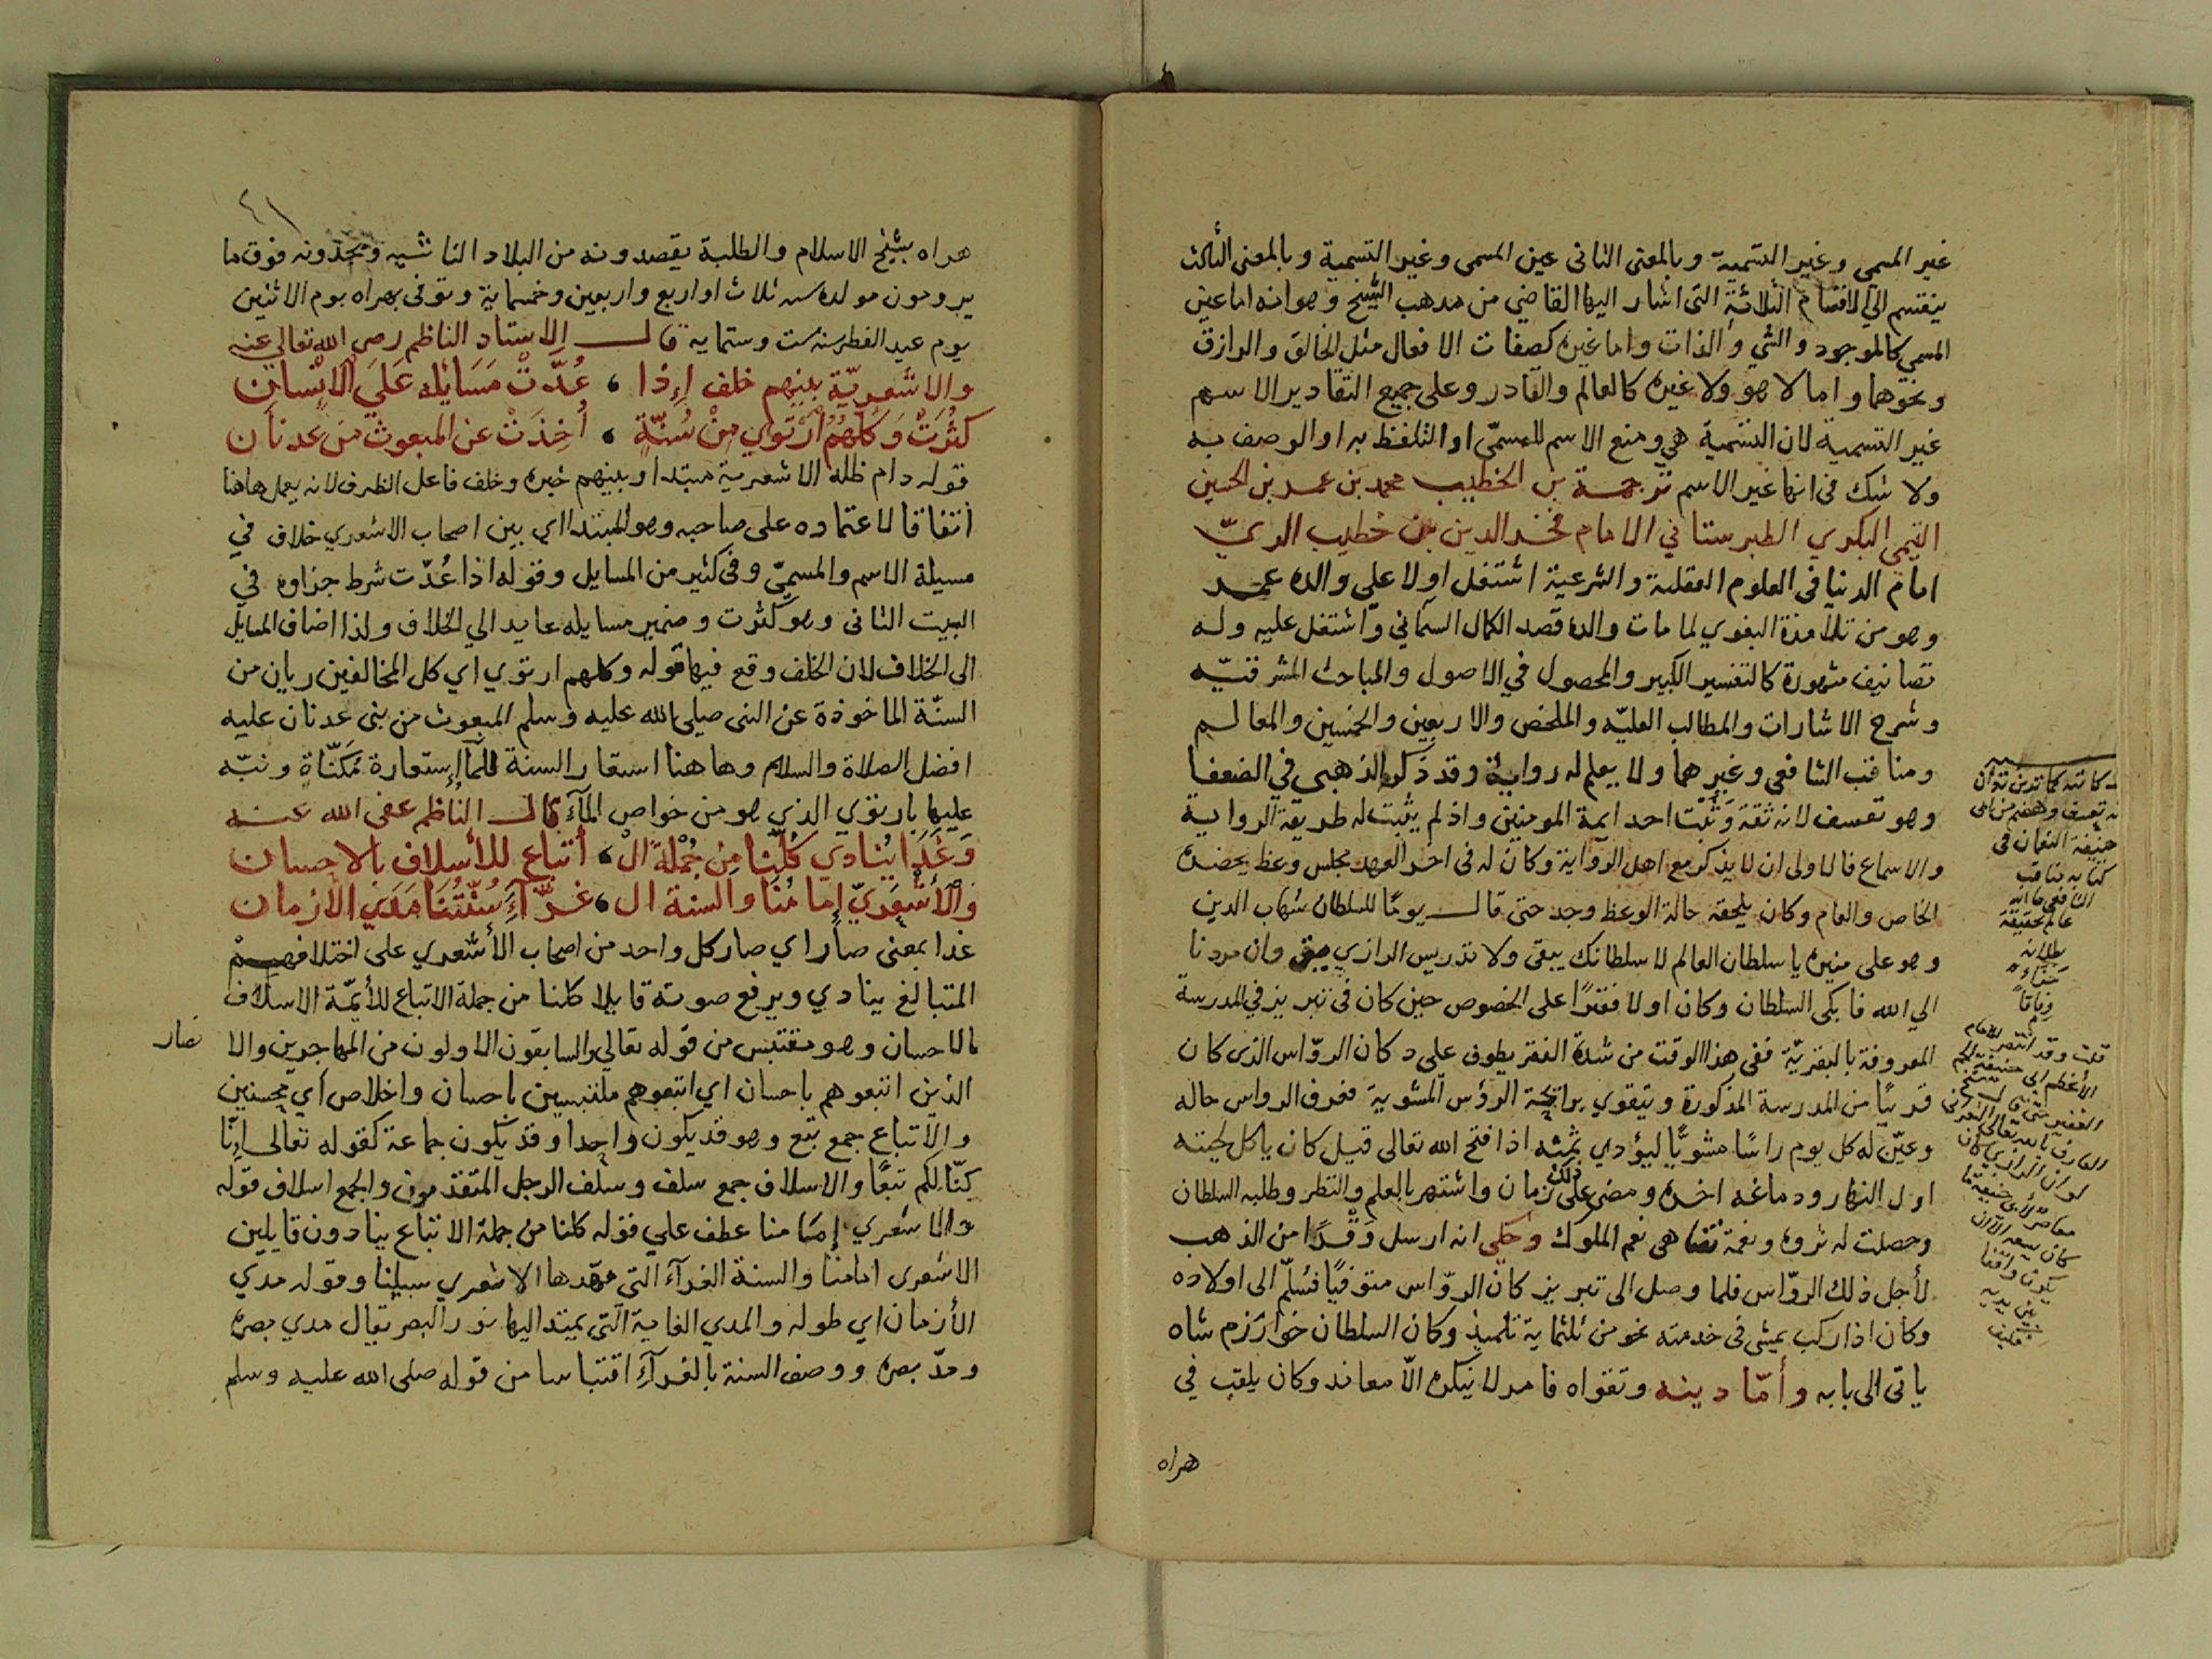 غير المسمي وغير التسمية وبالمعنى الثانى عين المسمى وغير التسمية وبالمعنى الثالث
ينقسم الي الاقسام الثلاثة التى اشار اليها القاضي من مذهب الشيخ وهو انه اما عين
المسمي كالموجود والشي والذات واما غيره كصفات الافعال مثل الخالق والرازق
ونحوهما واما لا هو ولا غيره كالعالم والقادر وعلى جميع التقادير الاسم
غير التسمية لان التسمية هي وضع الاسم للمسمّي او التلفظ به او الوصف به
ولا شك فى انها غير الاسم ترجمة بن الخطيب محمد بن عمر بن الحسين
التيمي البكري الطبرستاني الامام فخر الدين بن خطيب الريّ
امام الدنيا فى العلوم العقلية والشرعية اشتغل اولا علي والده عمر
وهو من تلامذة البغوي لما مات والده قصد الكمال السمناني واشتغل عليه وله
تصانيف مشهورة كالتفسير الكبير والمحصول في الاصول والمباحث المشرقيّه
وشرح الاشارات والمطالب العليّه والملخص والاربعين والخمسين والمعالم
ومناقب الشافعي وغيرهما ولا يعلم له رواية وقد ذكره الذهبي في الضعفا
وهو تعسف لانه ثقة وَثَبْت احد ايمة المومنين واذ لم يثبت له طريقة الرواية
والاسماع فالاولى ان لا يذكر مع اهل الرواية وكان له فى اخر العهد مجلس وعظ يحضره
الخاص والعام وكان يلحقه حالة الوعظ وجد حتى قال يومًا للسلطان شهاب الدين
وهو على منبره يا سلطان العالم لا سلطانك يبقى ولا تدريس الرازي يبقى وان مردنا
الي الله فابكى السلطان وكان اولا فقيرًا على الخصوص حين كان فى تبريز في المدرسة
المعروفة بالبقريّة ففى هذا الوقت من شدة الفقر يطوف علي دكان الروّاس الذى كان
قريبًا من المدرسة المذكورة ويتقوي برائحة الرؤس المشوية فعرف الرواس حاله
وعيّن له كل يوم راسًا مشويًّا ليؤدي ثمنه اذا فتح الله تعالى قيل كان ياكل لحيته
اول النهار ودماغه اخره ومضى على ذلك زمان واشتهر بالعلم والنظر وطلبه السلطان
وحصلت له ثروة ونعمة تضاهى نعم الملوك وحكى انه ارسل وَقْرًا من الذهب
لأجل ذلك الروّاس فلما وصل الى تبريز كان الروّاس متوفيًا فسُلّم الى اولاده
وكان اذا ركب يمشى فى خدمته نحو من ثلثماية تلميذ وكان السلطان خوارزم شاه
ياتى الى بابه وأمّا دينه وتقواه فامر لا ينكره الاّ معاند وكان يلقب في
هراه
هراه بشيخ الاسلام والطلبة يقصدونه من البلاد الناشيه ويجدونه فوق ما
يرومون مولده سنه ثلاث او اربع واربعين وخمسماية وتوفى بهراه يوم الاثنين
يوم عيد الفطر سنه ست وستماية قال الاستاد الناظم رضى الله تعالى عنه
والاشعريّة بينهم خلف اذا ، عُدّتْ مَسَايِله عَلَي الْاِنْسان
كثُرَتْ وَكلهُمُ ارْتَوي مِنْ سُنّةٍ ، أُخِذَتْ عن المبعوث من عدنان
قوله دام ظله الاشعرية مبتدا وبينهم خبره وخلف فاعل الظرف لانه يعمل هاهنا
اتفاقا لاعتماده على صاحبه وهو المبتدا اي بين اصحاب الاشعري خلاف في
مسيلة الاسم والمسمّي وفى كثير من المسايل وقوله اذا عُدّت شرط جزاوه في
البيت الثانى وهو كثرت وضمير مسايله عايد الي الخلاف ولذا اضاف المسايل
الى الخلاف لان الخلف وقع فيها قوله وكلهم ارتوي اي كل المخالفين ريان من
السنّة الماخوذة عن النبى صلى الله عليه وسلم المبعوث من بنى عدنان عليه
افضل الصلاة والسلام وهاهنا استعار السنة للمآ إستعارة مَكَنّاةٍ ونبّه
عليها بارتوي الذي هو من خواص المآء قال الناظم عفى الله عنه
وَغَدَا يُنادي كُلّنا مِن جُمْلةِ الْ ، أتباع للأسلاف بالاحسان
وَالْأَشْعَرِيّ إِمامُنَا والسنة ال ، غَرَّآءِ سُنّتُنَا مَدَي الأزمان
غدا بمعنى صار اي صار كل واحد من اصحاب الأشعري على اختلافهم
المتبالغ ينادي ويرفع صوته قايلا كلنا من جملة الاتباع للأيمّة الاسلاف
بالاحسان وهو مقتبس من قوله تعالي والسابقون الاولون من المهاجرين والا
نصار
الذين اتبعوهم باحسان اي اتبعوهم ملتبسين باحسان واخلاص أي محسنين
والأتباع جمع تبع وهو قد يكون واحدا وقد يكون جماعة كقوله تعالى إنّا
كنّا لكم تبعًا والاسلاف جمع سلف وسلف الرجل المتقدمون والجمع اسلاف قوله
والاشعري إمامنا عطف علي قوله كلنا من جملة الاتباع ينادون قايلين
الاشعرى امامنا والسنة الغرآء التى مهّدها الاشعري سبيلنا وقوله مدي
الأزمان اي طوله والمدي الغاية التى يمتد اليها نور البصر يقال مدي بصره
ومدّ بصره ووصف السنة بالغرآء اقتباسا من قوله صلى الله عليه وسلم